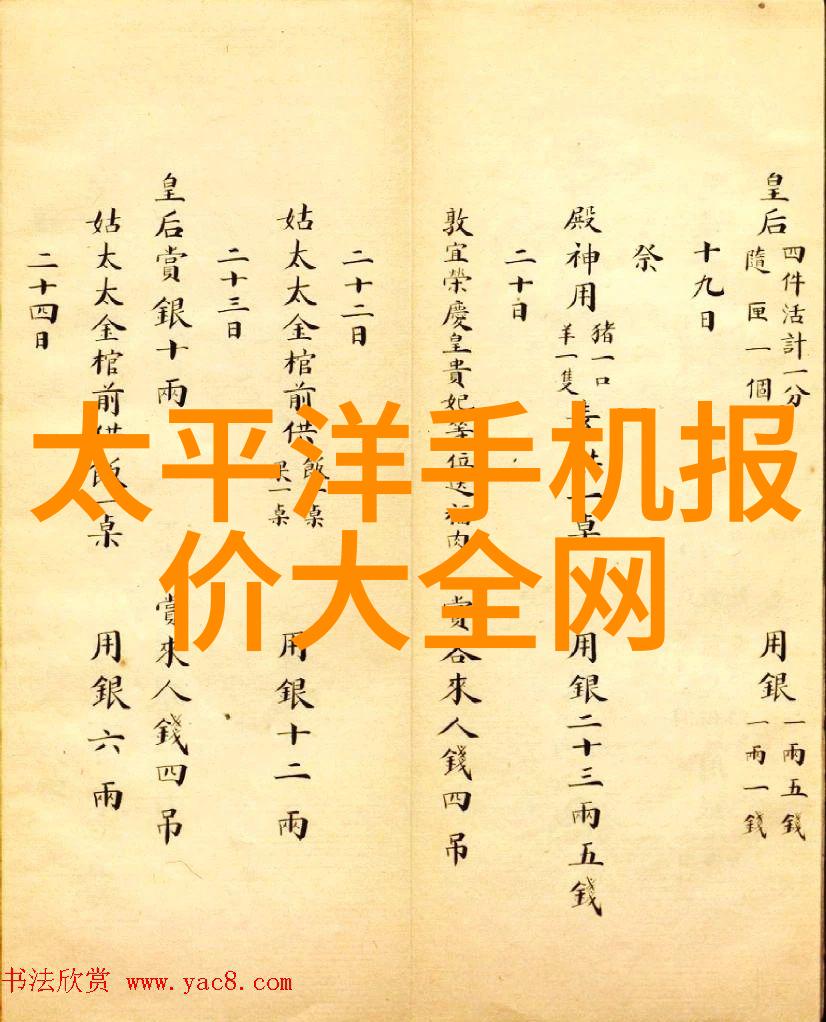 皇后 四件活計一分 隨匣一個 用銀 一兩五錢 一兩一錢
十九日
祭
殿神用 豬一口 羊一隻 桌 用銀二十三兩五錢
二十日
敦宜榮慶皇貴妃等位送福肉 賞各來人錢四吊
二十二日
姑太太金棺前供 飯一桌 果一桌 用銀十二兩
二十三日
皇后賞銀十兩 賞來人錢四吊
姑太太金棺前供飯一桌 用銀六兩
二十四日
太平洋手机报
价大全网
书法欣赏 www.yac8.com